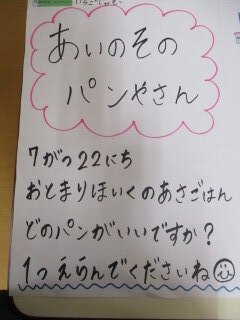 あいのその
パンやさん
7がつ22にち
おとまりほいくのあさごはん
どのパンがいいですか?
1つえらんでくださいね